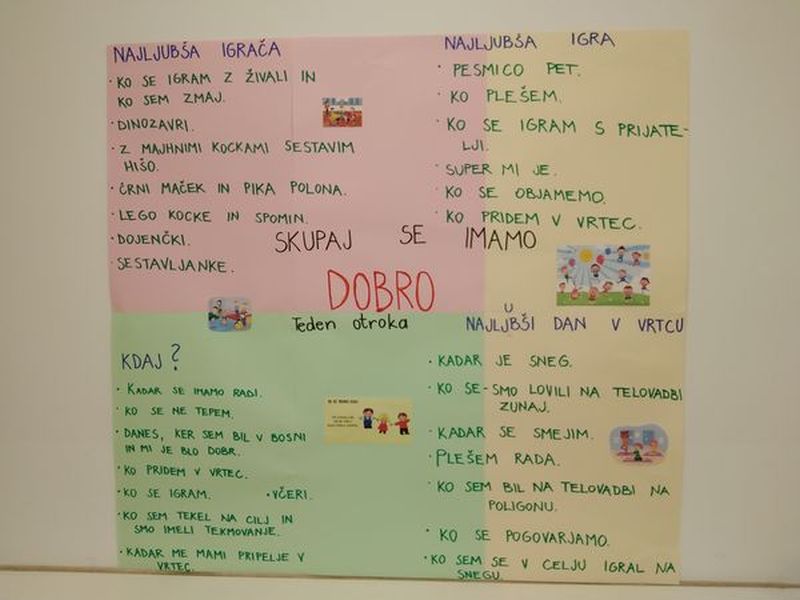 NAJLJUBŠA IGRAČA
· KO SE IGRAM Z ŽIVALI IN
KO SEM ZMAJ.
· DINOZAVRI.
· Z MAJHNIMI KOCKAMI SESTAVIM
HIŠO.
· ČRNI MAČEK IN PIKA POLONA.
· LEGO KOCKE IN SPOMIN.
· DOJENČKI.
· SESTAVLJANKE.
NAJLJUBŠA IGRA
· PESMICO PET.
· KO PLEŠEM.
· KO SE IGRAM S PRIJATE-
LJI.
· SUPER MI JE.
· KO SE OBJAMEMO.
· KO PRIDEM V VRTEC.
SKUPAJ SE IMAMO
DOBRO
Teden otroka
KDAJ?
· KADAR SE IMAMO RADI.
· KO SE NE TEPEM.
· DANES, KER SEM BIL V BOSNI
IN MI JE BLO DOBR.
· KO PRIDEM V VRTEC.
· KO SE IGRAM. · VČERI.
· KO SEM TEKEL NA CILJ IN
SMO IMELI TEKMOVANJE.
· KADAR ME MAMI PRIPELJE V
VRTEC.
U
NAJLJBŠI DAN V VRTCU
· KADAR JE SNEG.
· KO SE-SMO LOVILI NA TELOVADBI
ZUNAJ.
· KADAR SE SMEJIM.
· PLEŠEM RADA.
· KO SEM BIL NA TELOVADBI NA
POLIGONU.
· KO SE POGOVARJAMO.
· KO SEM SE V CELJU IGRAL NA
SNEGU.